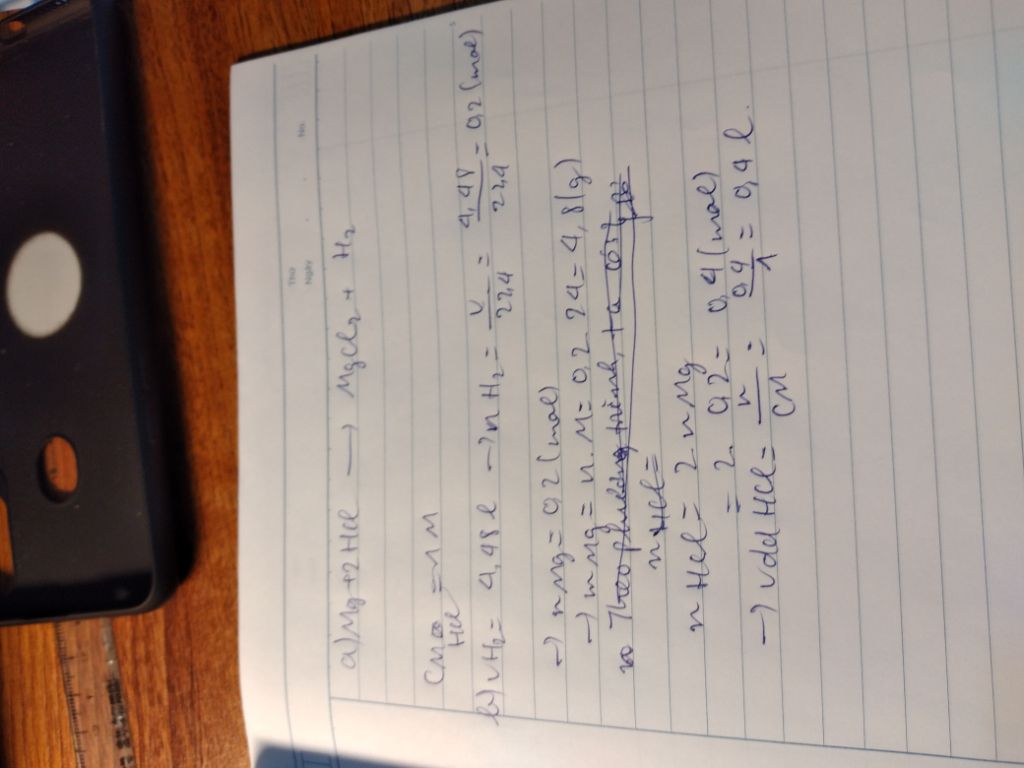 Thứ
Ngày
No.
a) Mg + 2HCl → MgCl2 + H2
CM HCl = 1M
b) VH2 = 4,48 l → nH2 = V/22,4 = 4,48/22,4 = 0,2 (mol)
→ nMg = 0,2 (mol)
→ mMg = n.M = 0,2.24 = 4,8 (g)
Theo phương trình, ta có
nHCl =
nHCl = 2nMg
= 2.0,2 = 0,4 (mol)
→ VddHCl = n/CM = 0,4/1 = 0,4 l.